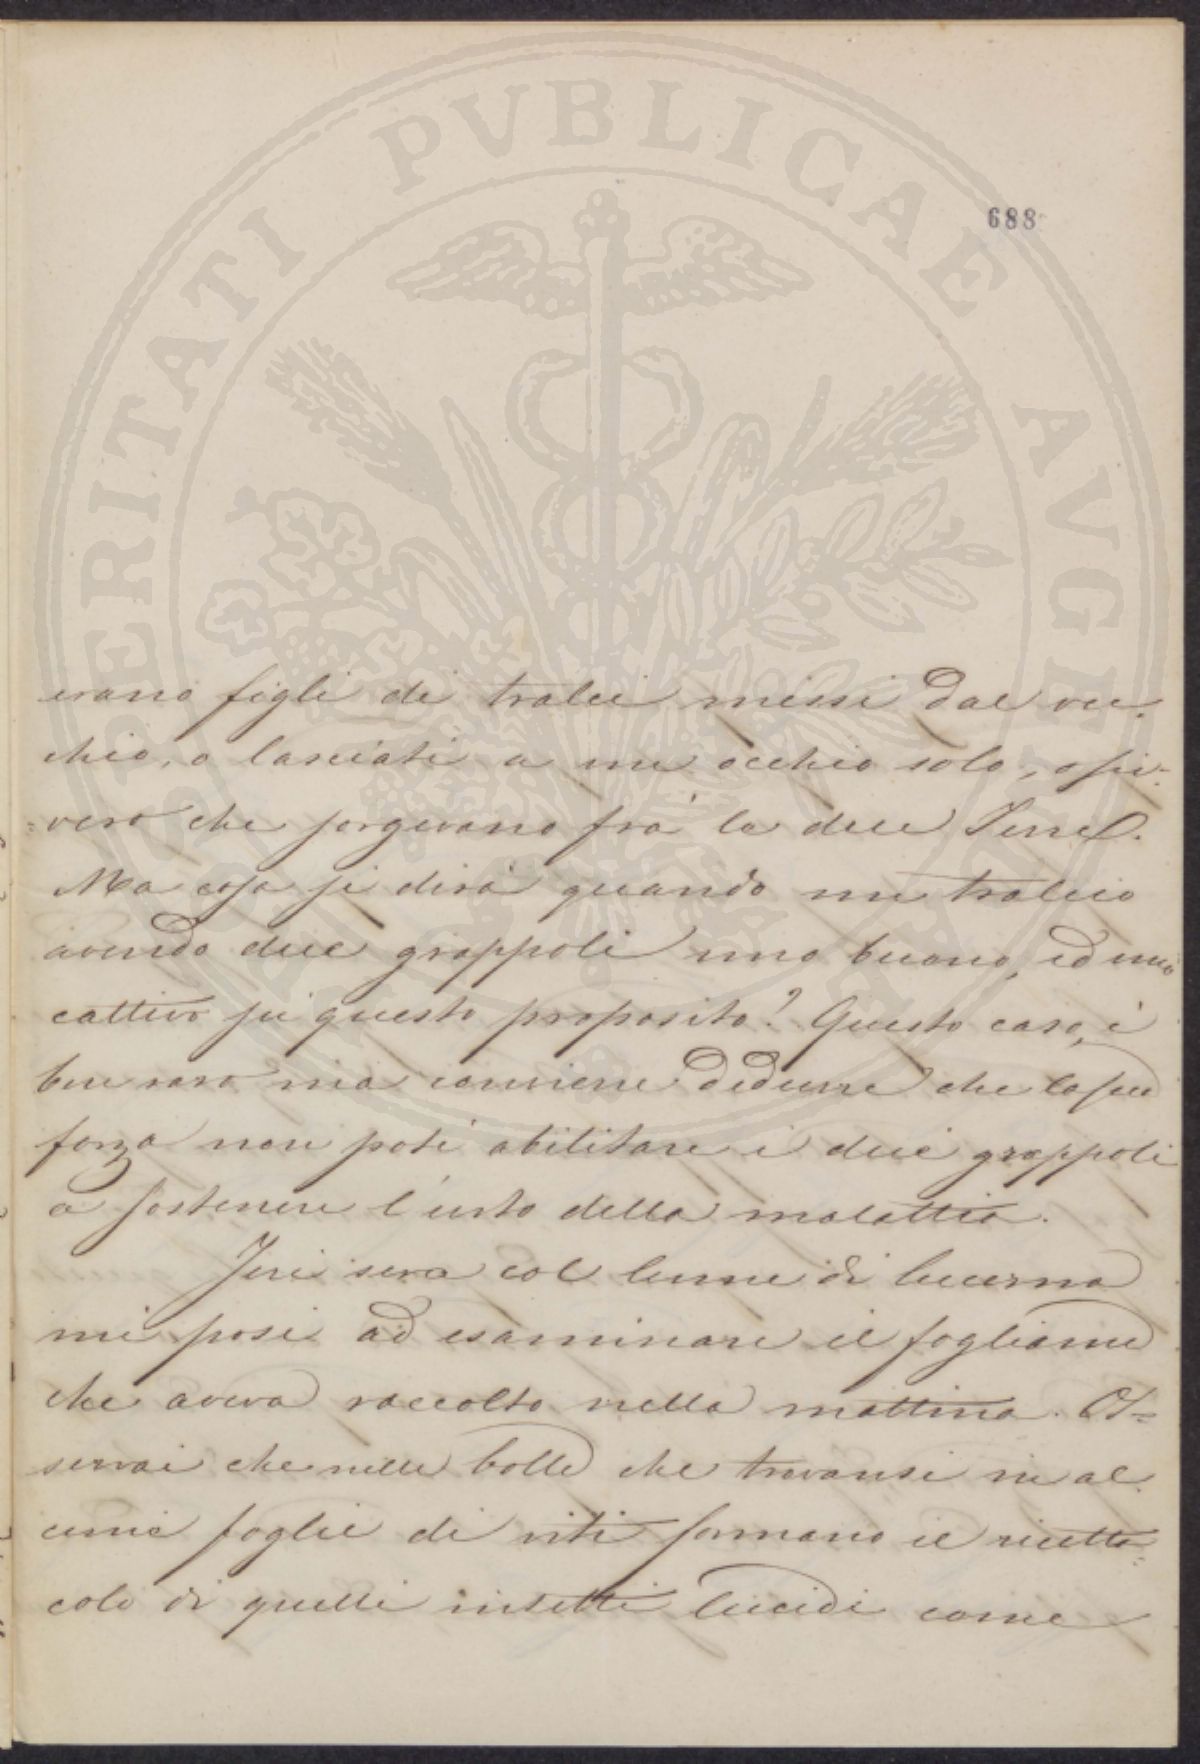 PROSPERITATI PVBLICAE AVGENDAE
688
erano figli di tralci messi dal vec-
chio, o lasciati a un occhio solo, opu-
=vero che sorgevano frà le due Terre.
Ma cosa si dirà quando un tralcio
avendo due grappoli uno buono, ed uno
cattivo su questo proposito? Questo caso, è
ben raro ma conviene dedurre che la sua
forza non poté abilitare i due grappoli
a sostenere l'urto della malattia.
Jeri sera col lume di lucerna
mi posi ad esaminare il fogliame
che aveva raccolto nella mattina. Os=
servai che nelle bolle che trovansi in al
cune foglie di viti formano il ricetta=
colo di quelli insetti lucidi come